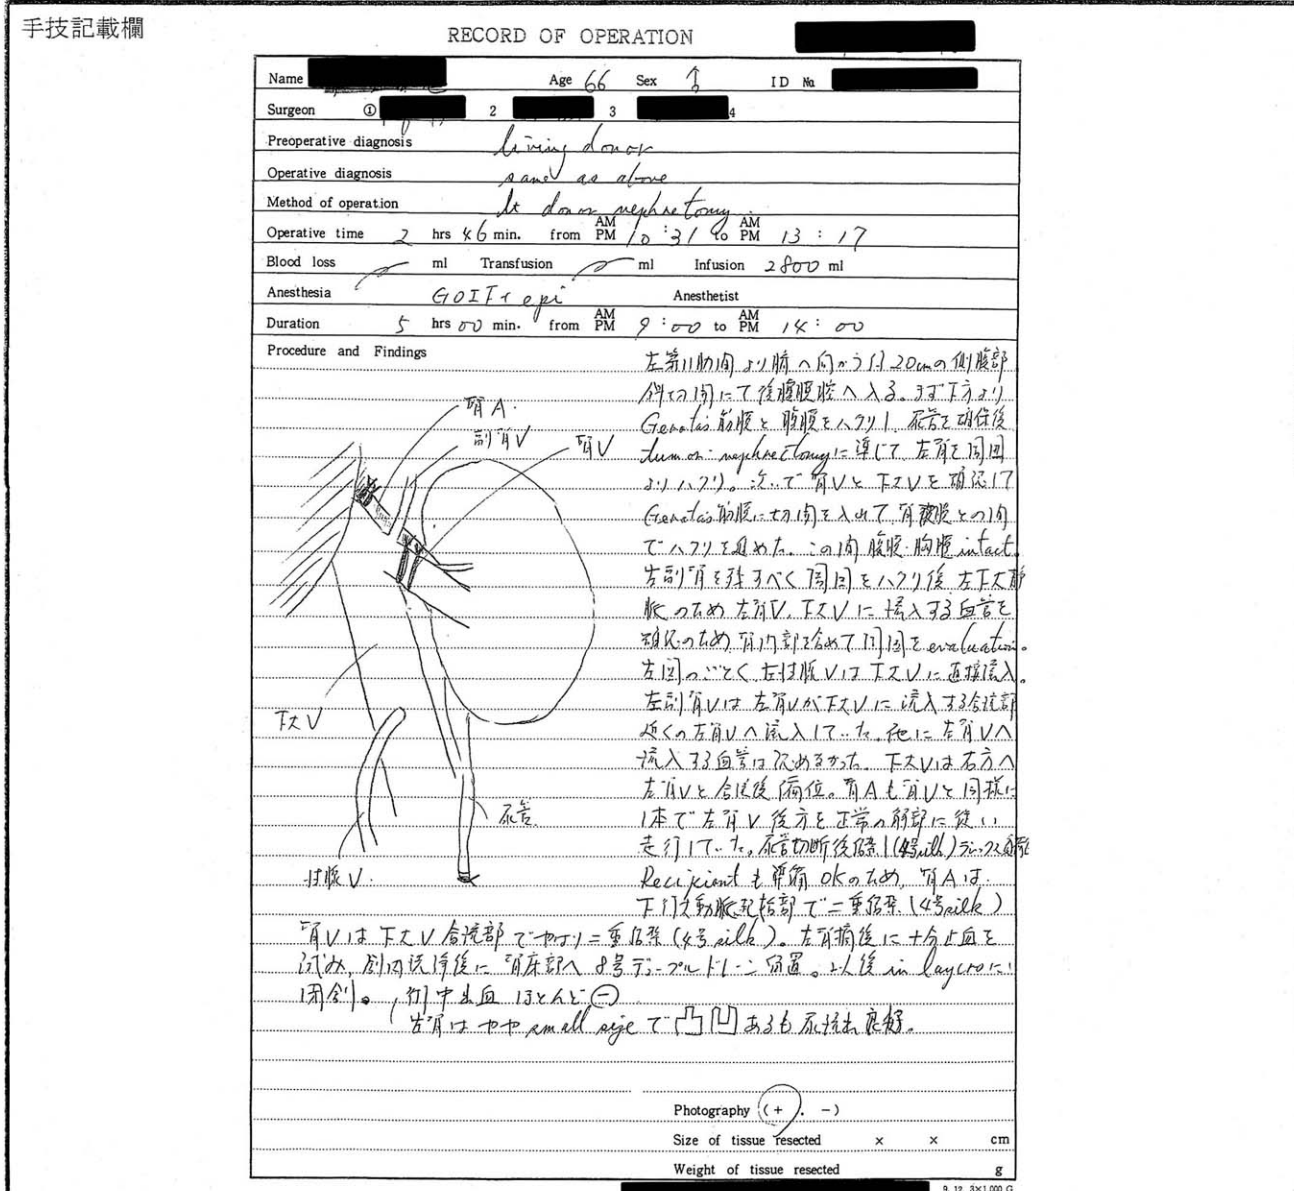 手技記載欄
RECORD OF OPERATION
Name Age 66 Sex ID No.
Surgeon ① 2 3 4
Preoperative diagnosis living donor
Operative diagnosis same as above
Method of operation lt donor nephrectomy.
Operative time 2 hrs 46 min. from AM PM 10:31 to AM PM 13:17
Blood loss ml Transfusion ml Infusion 2800 ml
Anesthesia GOIF + epi Anesthetist
Duration 5 hrs 00 min. from AM PM 9:00 to AM PM 14:00
Procedure and Findings
腎A.
副腎V
腎V
下大V
尿管
性腺V.
左第11肋間より臍へ向かう約20cmの側腹部
斜切開にて後腹膜腔へ入る。まず下方より
Gerota's筋膜と腹膜をハクリし、尿管を確保後
tumor nephrectomyに準じて、左腎を周囲
よりハクリ。次いで腎Vと下大Vを確認して
Gerota's筋膜に切開を入れて、腎被膜との間
でハクリを進めた。この間腹膜・胸膜intact.
左副腎を残すべく周囲をハクリ後、左下大静
脈のため左腎V、下大Vに流入する血管を
確認のため、腎門部を含めて周囲をevaluation。
左図のごとく、左性腺Vは下大Vに直接流入。
左副腎Vは左腎Vが下大Vに流入する合流部
近くの左腎Vへ流入していた。他に左腎Vへ
流入する血管は認めなかった。下大Vは右方へ
左腎Vと合流後偏位。腎Aも腎Vと同様に
1本で左腎V後方を正常の解剖に従い
走行していた。尿管切断後結紮(4号silk)
Recipientも準備OKのため、腎Aは
下行大動脈起始部で二重結紮(4号silk)
腎Vは下大V合流部でやはり二重結紮(4号silk)。左腎摘後に十分止血を
試み、創内洗浄後に腎床部へ8号デュープルドレーン留置。以後in layersに
閉創。術中出血ほとんど㊀
左腎はやや small sizeで凸凹あるも尿流出良好。
Photography (+. −)
Size of tissue resected × × cm
Weight of tissue resected g
9. 12. 3×1,000 G